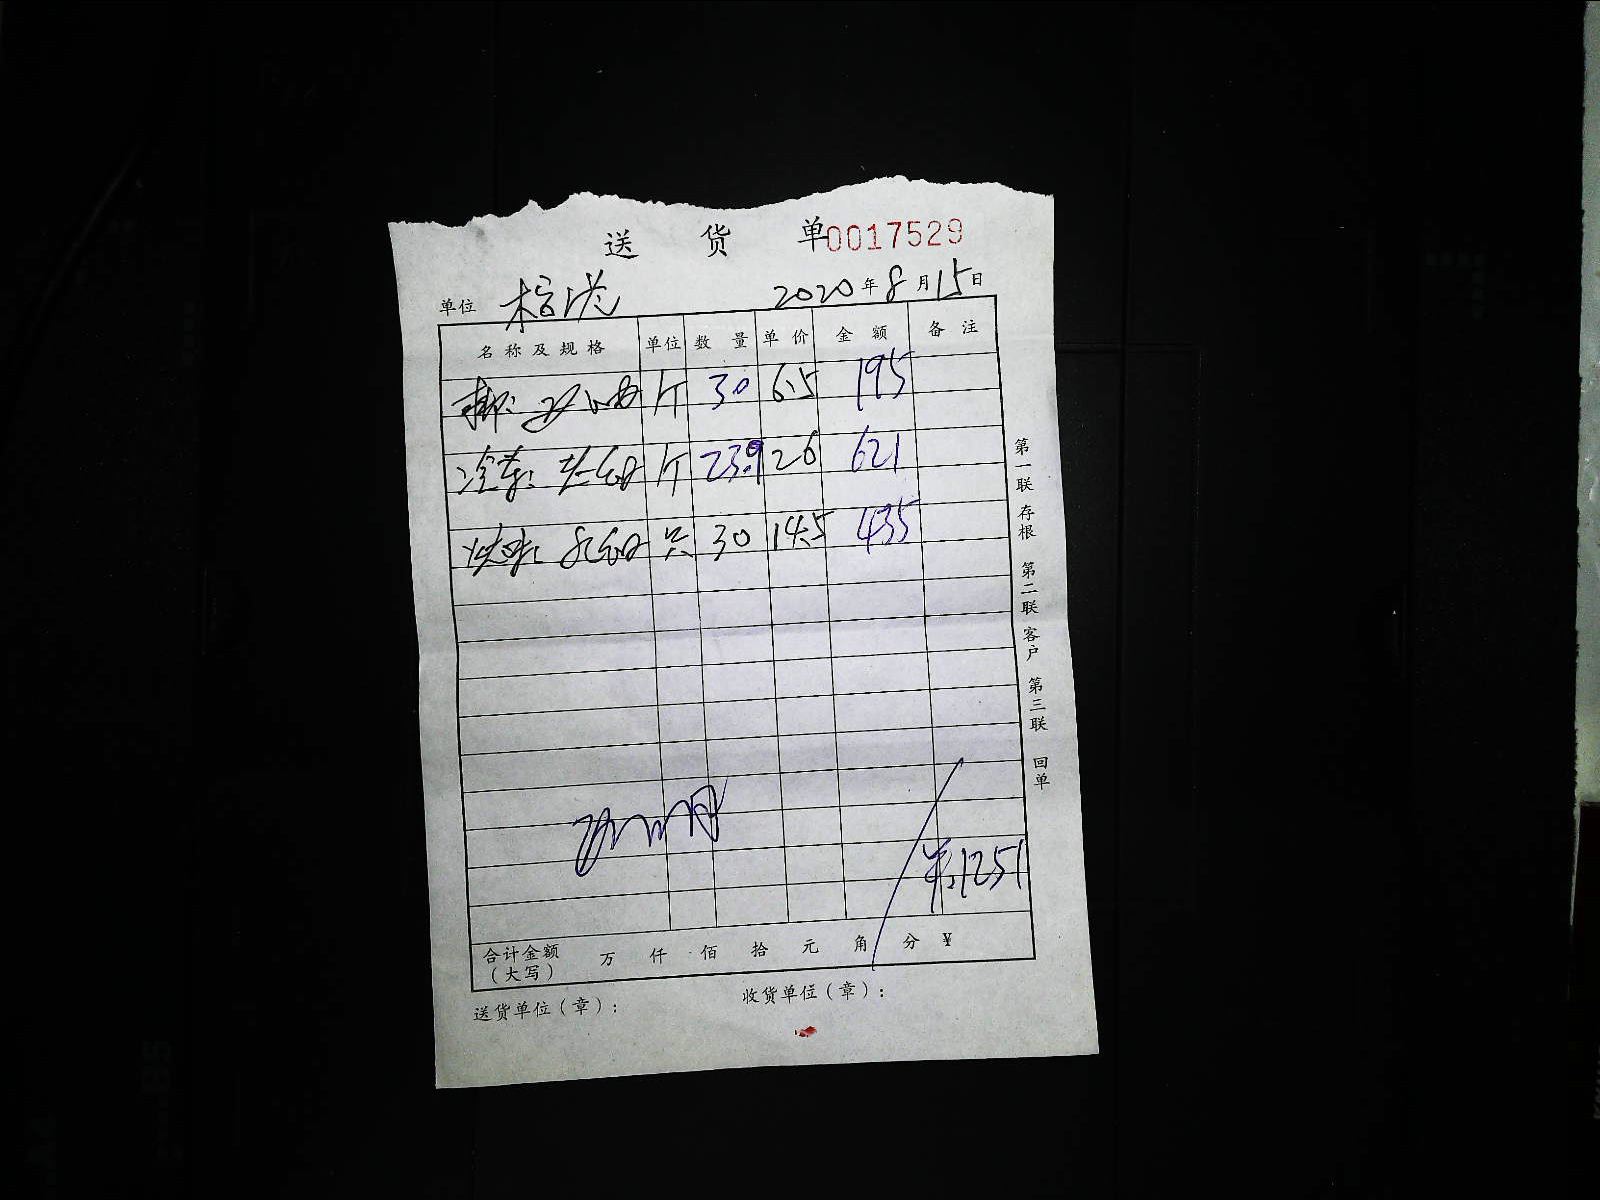 送 货 单0017529
单位 2020年8月15日
名称及规格 单位 数量 单价 金额 备注
斤 30 6.5 195
冷 斤 23.9 26 621
只 30 14.5 435
¥:1251
合计金额(大写) 万 仟 佰 拾 元 角 分 ¥
送货单位(章): 收货单位(章):
第一联 存根 第二联 客户 第三联 回单